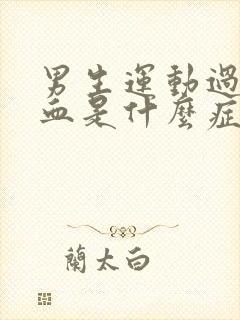 男生運動過
血是什麼症
蘭太白